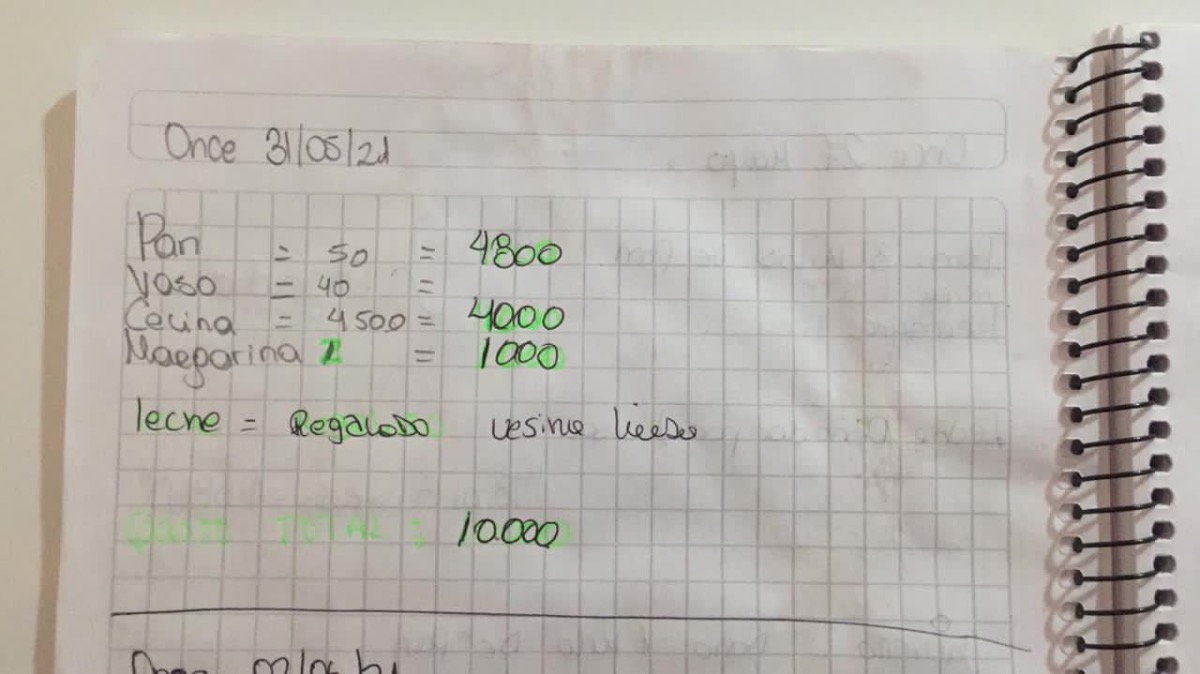 Once 31/05/21
Pan = 50 = 4800
Vaso = 40 =
Cecina = 4500 = 4000
Maegarina 1 = 1000
leche = Regalado vesina
TOTAL : 10.000
Once